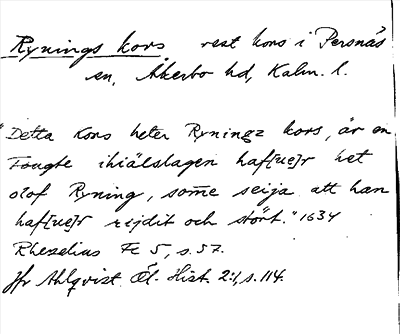 Rynings kors, rest kors i Persnäs
sn, Åkerbo hd, Kalm. l.
"Detta Kors heter Ryningz kors, är en
Fougte ihiälslagen haf[ue]r het
olof Ryning, som̄e seija att han
haf[ue]r rijdit och stört." 1634
Rhezelius Fc 5, s. 57.
Jfr Ahlqvist Öl. Hist. 2:1, s. 114.